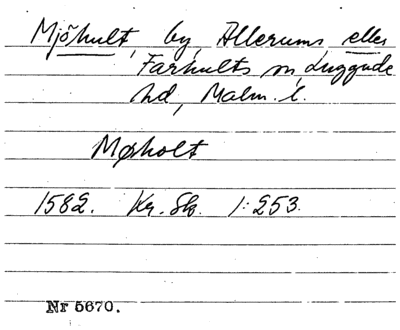 Mjöhult, by, Allerums, eller
Farhults sn, Luggude
hd, Malm. l.
Møholt
1582. Kr. Sk. 1:253.
Nr 5670.